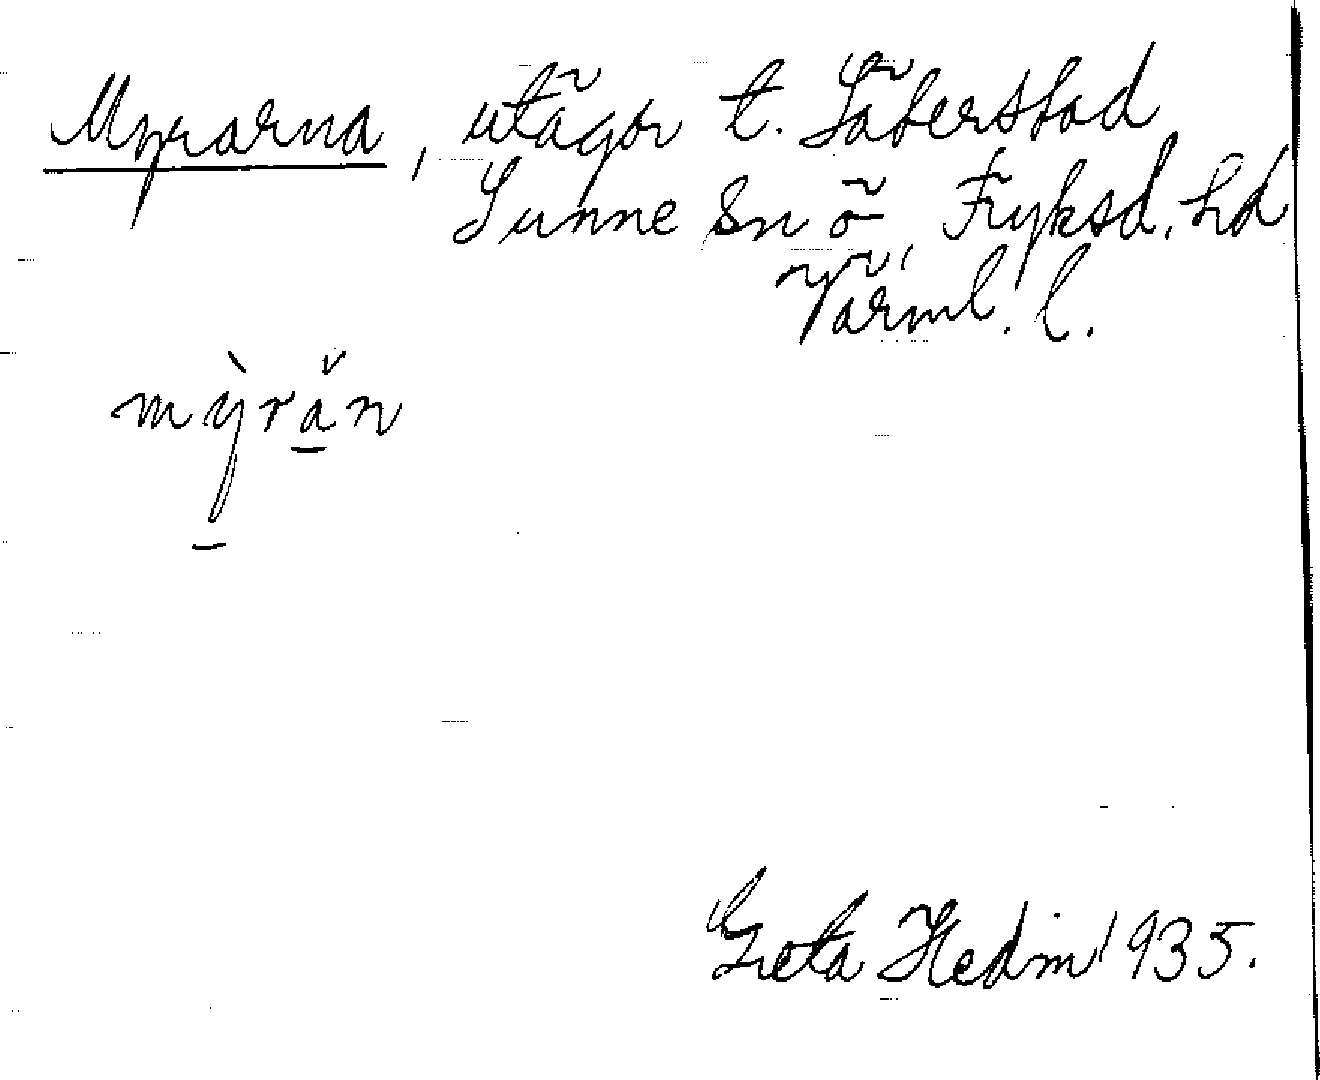 Myrarna, utägor t. Såberstad
Sunne sn ö, Fryksd. hd
Värml. l.
mỳrăn
Greta Hedin 1935.